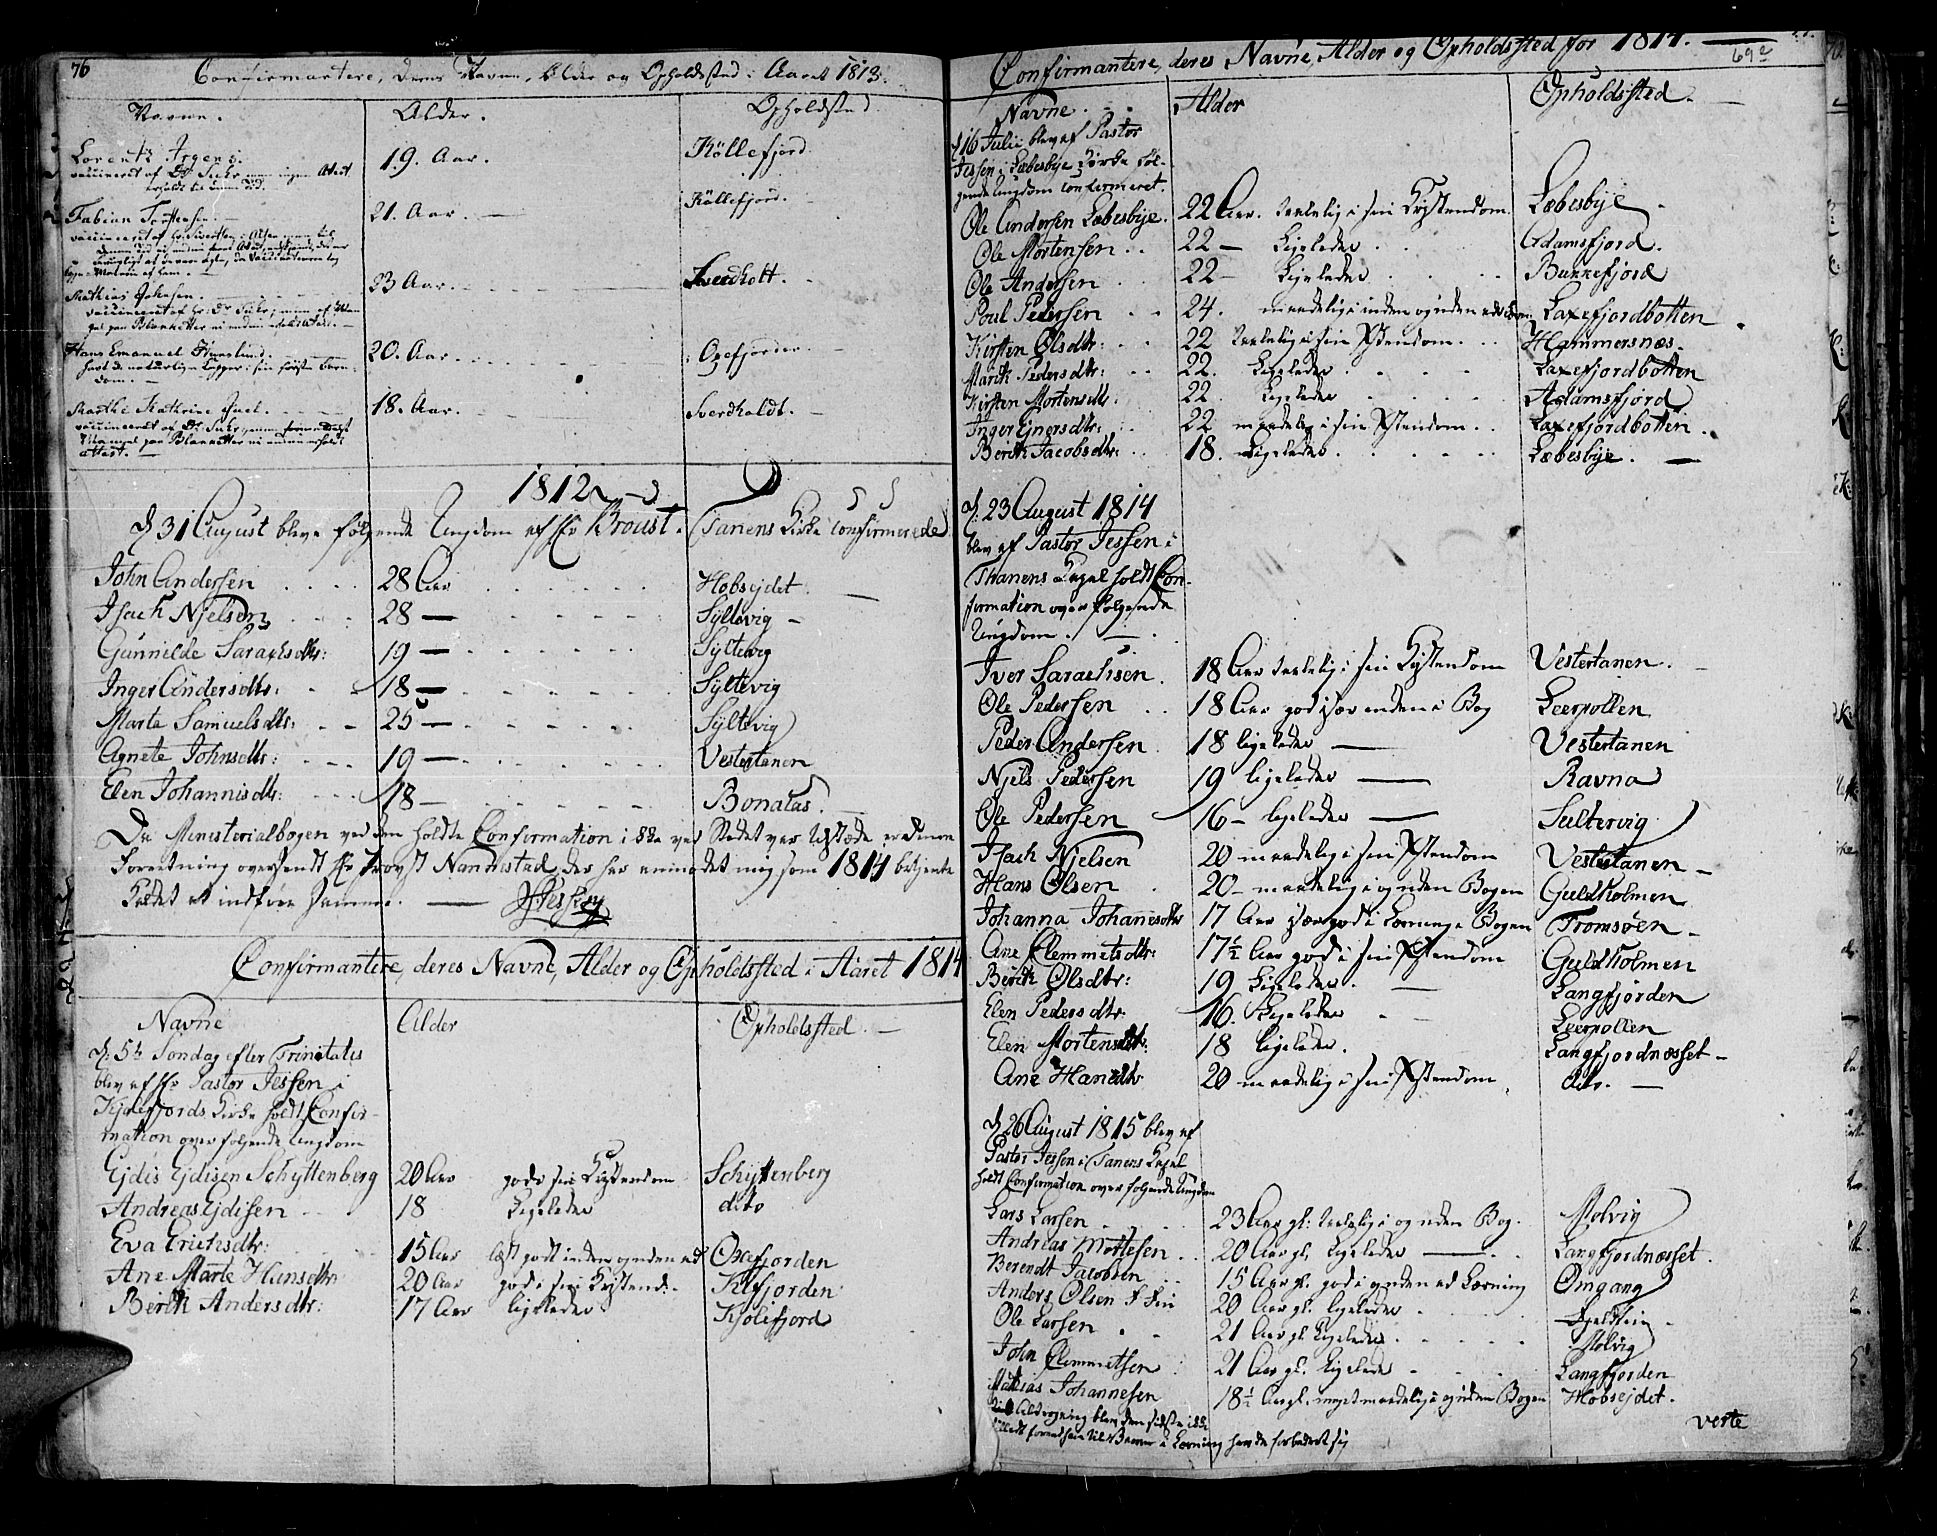 76
Confirmantere, deres Navne, Alder og Opholdsted i Aaret 1813.
Navne. Alder. Opholdsted
Lorentz Irgens. 19. Aar. Köllefjord
vaccineret af Dr Suhr
Fabian 21. Aar. Kӧllefjord.
vaccineret af
Mathias Johnsen. 23 Aar. Sverdholt.
vaccineret af Hr: Dr Suhr
Hans Emanuel 20. Aar. Oxefjorden
havt de naturlige Kopper i sin første Barn-
dom.
Marthe Kathrine Juel. 18. Aar. Sverdholdt.
vaccineret af Dr Suhr
attest.
1812
D. 31 August bleve følgende Ungdom af Hr Kroust i Tanens Kirke confirmerede
John Andersen 28 Aar Hobsejdet.
Isach Njelsen 28 — Syltevig
Gunnilde Sarachsdtr: 19 — Syltevig
Inger Andersdtr: 18 — Syltevig
Marte Samuelsdtr: 25 — Syltevig
Agnete Johnsdtr: 19 — Vestertanen
Elen Johannisdtr: 18 — Bonakas.
Da Ministerialbogen ved den holdte Confirmation ikke ved Stedet var tilstæde, er denne
Forretning oversendt Hr Provst Nannestad, der har anmodet mig som 1814 betjente
Kaldet at indføre samme. Jessen
Confirmantere, deres Navne, Alder og Opholdssted i Aaret 1814
Navne Alder Opholdssted.
D. 5te Søndag efter Trinitatis
blev af Hr Pastor Jessen i
Kjølefjords Kirke holdt Confir-
mation over følgende Ungdom
Ejdis Ejdisen Schyttenberg 20 Aar god i sin Kristendom Schyttenberg
Andreas Ejdisen 18 Ligeledes dito
Eva Erichsdtr: 15 Aar læst godt inden og uden ad Oxefjorden
Ane Marte Hansdtr 20 Aar god i sin Kristend: Kilfjorden
Berith Andersdtr: 17 Aar ligeledes Kjölefjord
Confirmantere, deres Navne, Alder og Opholdsted for 1814.
69
Navne Alder Opholdssted.
D 16 Julii blev af Pastor
Jessen i Læbesbye Kirke føl-
gende Ungdom confirmeret.
Ole Andersen Læbesbye. 22 Aar. taalelig i sin Kristendom Læbesbye
Ole Mortensen 22 — Ligeledes Adamsfjord.
Ole Andersen 22 — Ligeledes Bunkefjord
Poul Pedersen 24. maadelig i inden og uden ad Laxefjordbotten
Kirsten Olsdtr: 22 taalelig i sin Xstendom Hammersnæs.
Marith Pedersdtr: 22. Ligeledes Laxefjordbotten
Kirsten Mortensdtr: 22. Ligeledes Adamsfjord
Inger Ejnersdtr: 22 maadelig i sin Xstendom Laxefjordbotten.
Berith Jacobsdtr: 18. Ligeledes Læbesbye.
D. 23 August 1814
blev af Pastor Jessen i
Thanens Capel holdt Con-
firmation over følgende
Ungdom.
Iver Sarachsen. 18 Aar taalelig i sin Kristendom Vestertanen.
Ole Pedersen 18 Aar god især inden i Bog Leerpollen
Peder Andersen 18 ligeledes Vestertanen
Njels Pedersen 19 ligeledes Ravna
Ole Pedersen 16 — ligeledes Sultervig
Isach Njelsen 20 maadelig i sin Xstendom Vestertanen
Hans Olsen 20 — maadelig i og uden Bogen Guldholmen
Johanna Johanesdtr 17 Aar især god i Lærning i Bogen Tromsøen
Ane Clemmetsdtr: 17½ Aar god i sin Xstendom Guldholmen
Berith Olsdtr: 19 Ligeledes. Langfjorden
Elen Pedersdtr: 16. Ligeledes Leerpollen
Elen Mortensdtr: 18 ligeledes. Langfjordnæsset
Ane Hansdtr 20 maadelig i sin Xstendom dito.
D. 26 August 1815 blev af
Pastor Jessen i Tanens Capel
holdt Confirmation over følgende Ungdom
Lars Larsen 23 Aar gl: taalelig i og uden Bog. Molvig
Andreas Mortesen 20 Aar gl. Ligeledes Langfjordnæsset.
Berendt Jacobsen 15 Aar gl. god i og uden ad Lærning Omgang
Anders Olsen 20 Aar gl. ligeledes
Ole Larsen 21 Aar gl. Ligeledes Molvig
John Clemmetsen 21 Aar gl. Ligeledes Langfjorden
Mathias Johannesen 18½ Aar gl. meget maadelig i og uden Bogen Hobsejdet.
verte